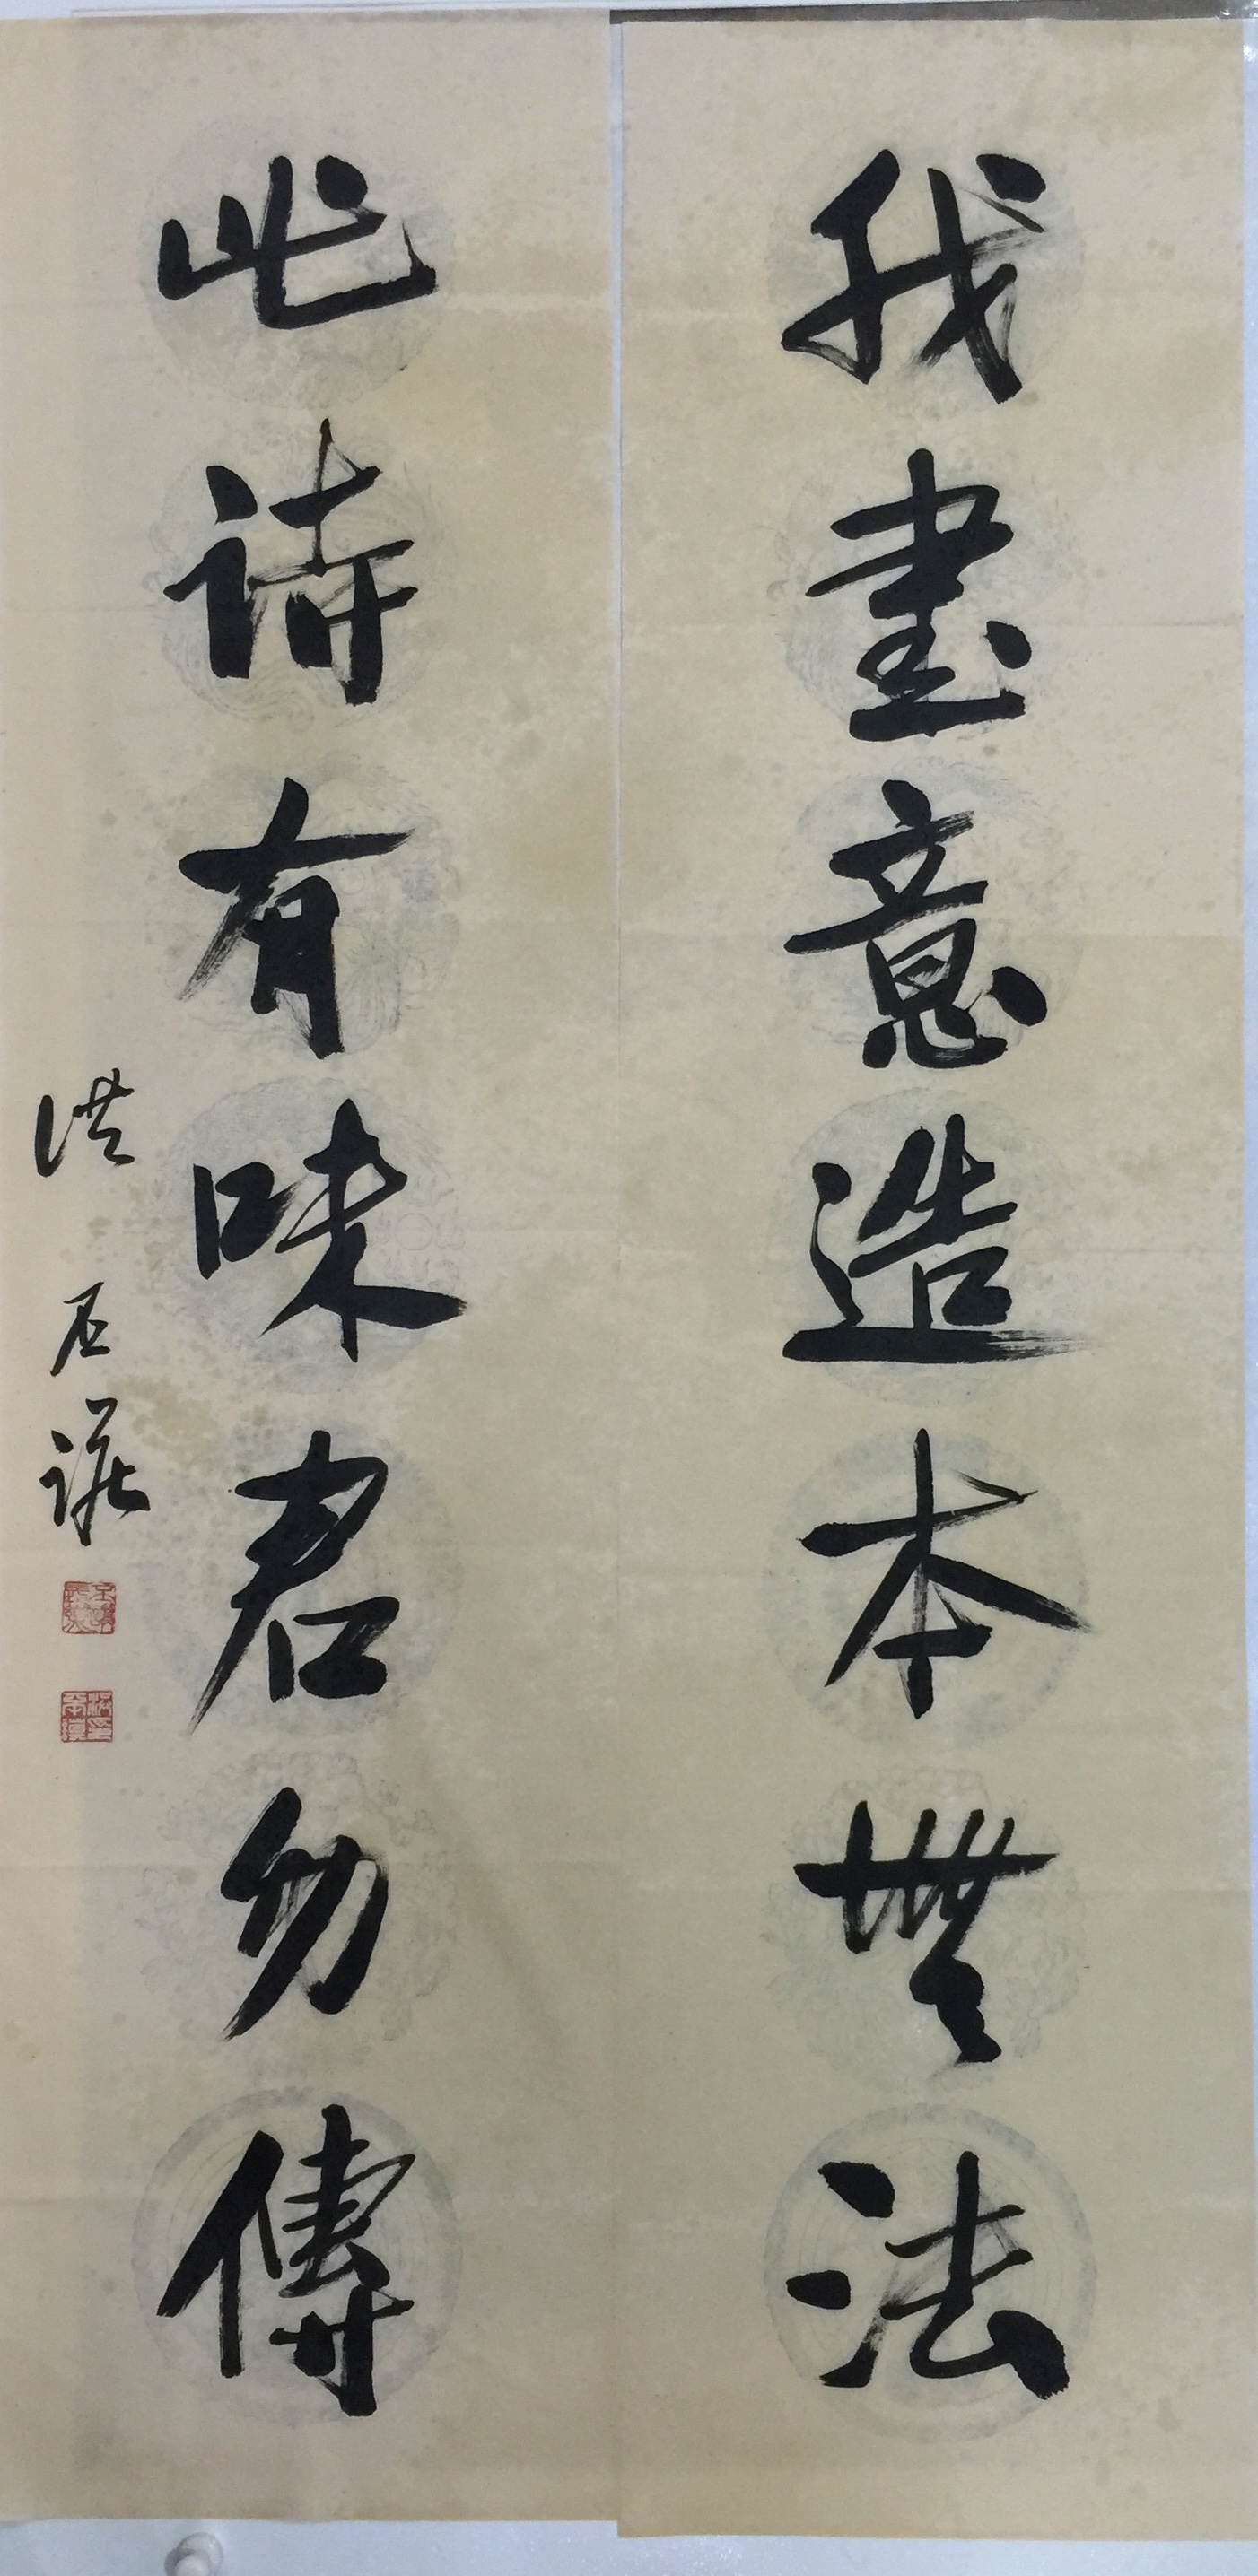 我書意造本無法
此詩有味君勿傳
洪丕謨